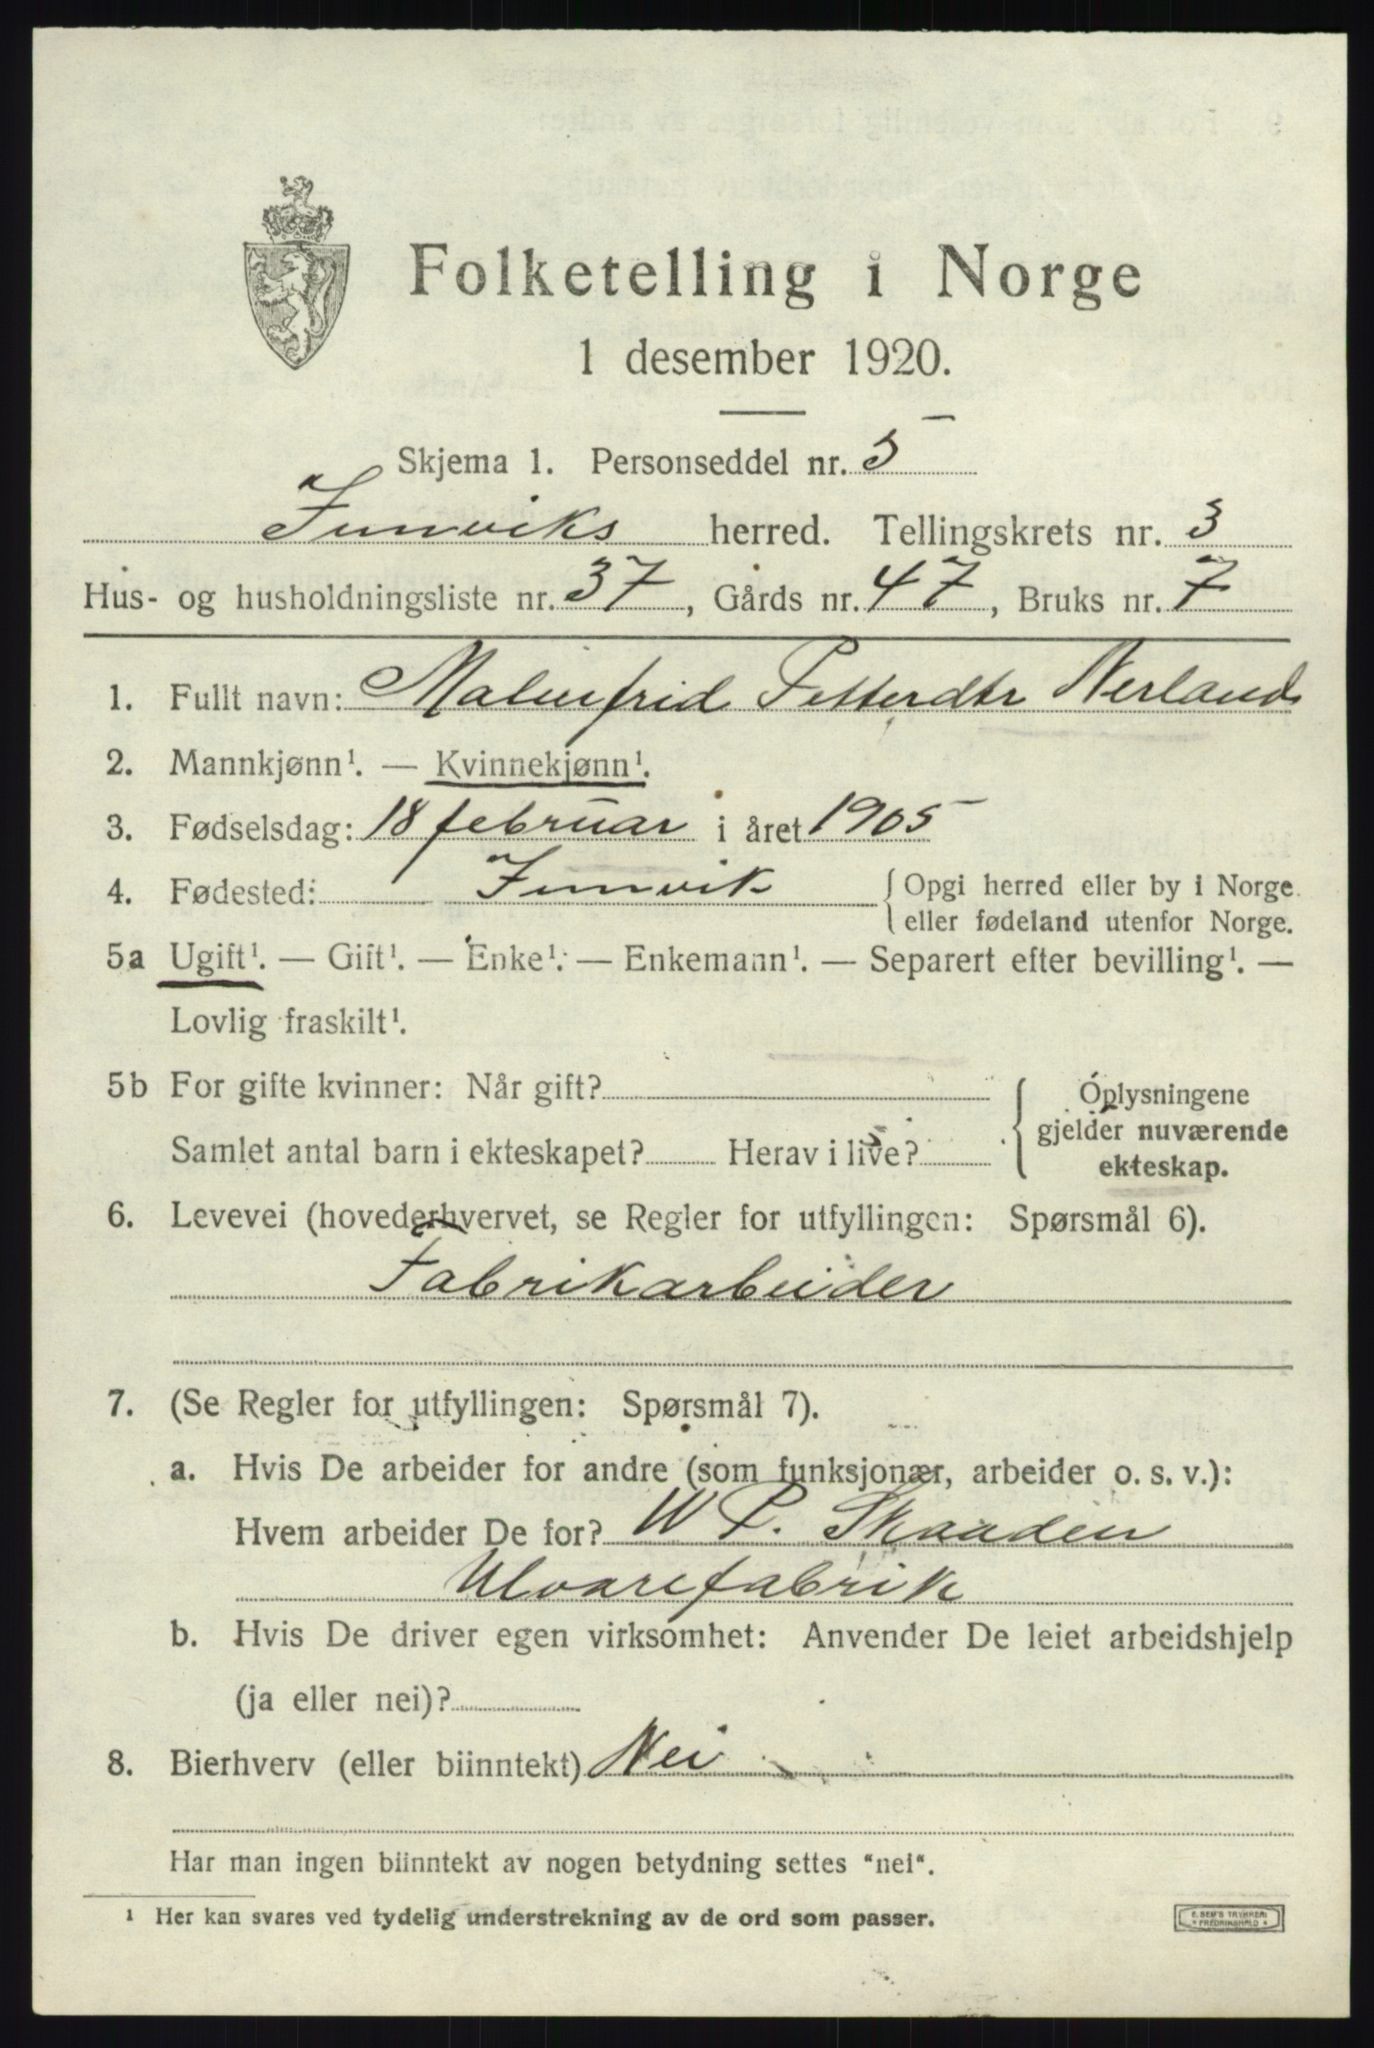 Folketelling i Norge
1 desember 1920.
Skjema 1. Personseddel nr. 5
Innviks herred. Tellingskrets nr. 3
Hus- og husholdningsliste nr. 37, Gårds nr. 47, Bruks nr. 7
1. Fullt navn: Malmfrid Petterdtr Nerland
2. Mannkjønn¹. — Kvinnekjønn¹.
3. Fødselsdag: 18 februar i året 1905
4. Fødested: Innvik { Opgi herred eller by i Norge
eller fødeland utenfor Norge.
5a Ugift¹. — Gift¹. — Enke¹. — Enkemann¹. — Separert efter bevilling¹. —
Lovlig fraskilt¹.
5b For gifte kvinner: Når gift?
Samlet antal barn i ekteskapet? Herav i live?
{ Oplysningene
gjelder nuværende
ekteskap.
6. Levevei (hovederhvervet, se Regler for utfyllingen: Spørsmål 6).
Fabrikarbeider
7. (Se Regler for utfyllingen: Spørsmål 7).
a. Hvis De arbeider for andre (som funksjonær, arbeider o. s. v.):
Hvem arbeider De for? W P. Skaaden
Ulvarefabrik
b. Hvis De driver egen virksomhet: Anvender De leiet arbeidshjelp
(ja eller nei)?
8. Bierhverv (eller biinntekt) Nei
Har man ingen biinntekt av nogen betydning settes "nei".
¹ Her kan svares ved tydelig understrekning av de ord som passer.
E. SEM'S TRYKKERI
FREDRIKSHALD